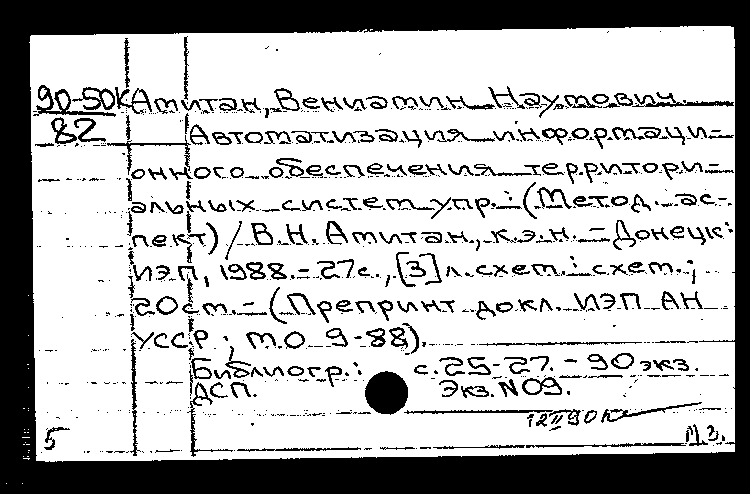 90-50К Амитан, Вениамин Наумович.
82 Автоматизация информаци-
онного обеспечения территори-
альных систем упр. : (Метод. ас-
пект) / В.Н. Амитан, к.э.н. - Донецк:
ИЭП, 1988. - 27с., [3] л. схем. : схем. ;
20см. - (Препринт докл. ИЭП АН
УССР ; т.О 9-88).
Библиогр.: с.25-27. - 90 экз.
ДСП. Экз. N 09.
12 II 90 К
5 М.З.